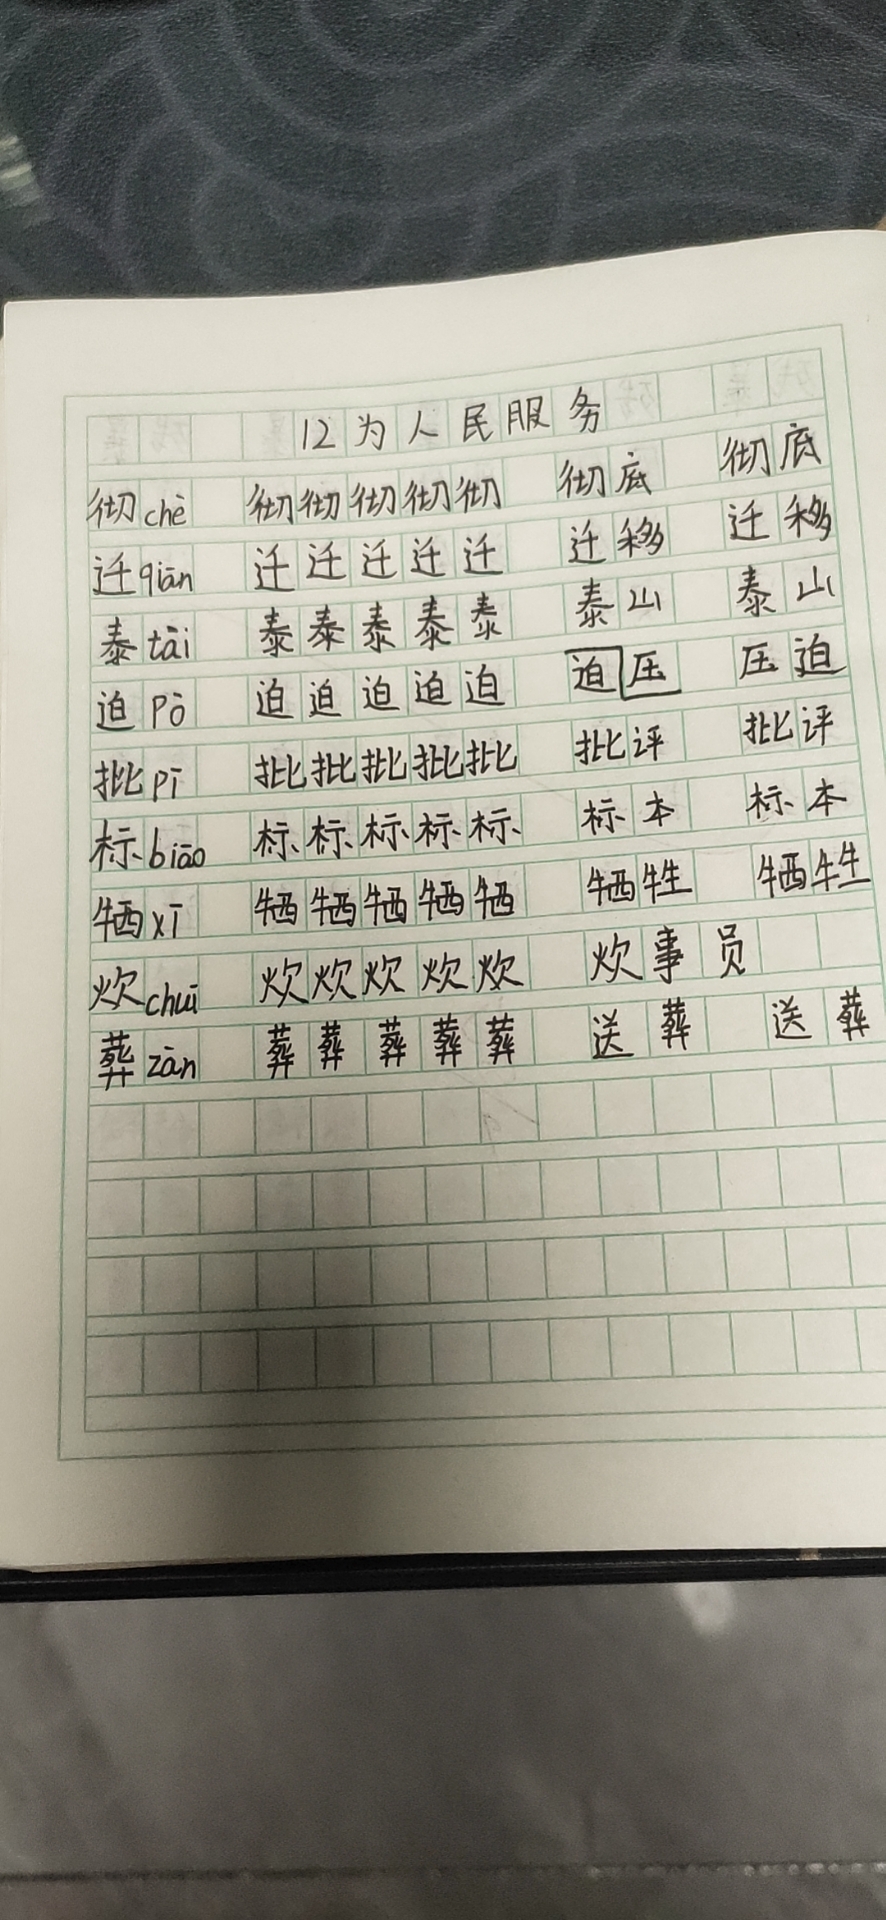 12为人民服务
彻chè 彻彻彻彻彻 彻底 彻底
迁qiān 迁迁迁迁迁 迁移 迁移
泰tài 泰泰泰泰泰 泰山 泰山
迫pò 迫迫迫迫迫 迫压 压迫
批pī 批批批批批 批评 批评
标biāo 标标标标标 标本 标本
牺xī 牺牺牺牺牺 牺牲 牺牲
炊chuī 炊炊炊炊炊 炊事员
葬zàn 葬葬葬葬葬 送葬 送葬